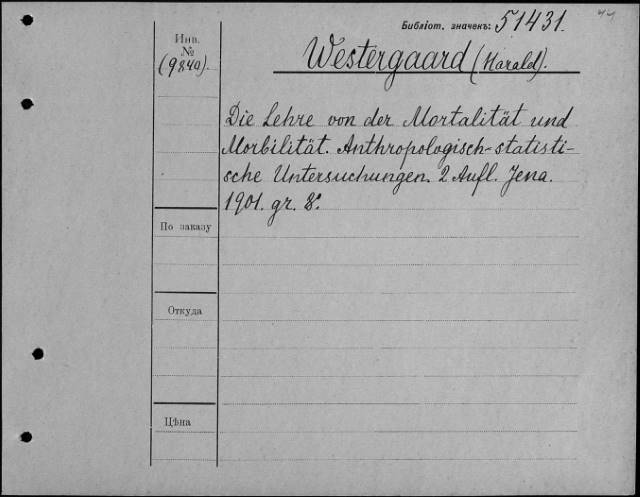 Библіот. значекъ: 51431.
Инв.
№
(9840).
Westergaard (Harald).
Die Lehre von der Mortalität und
Morbilität. Anthropologisch-statisti-
sche Untersuchungen. 2 Aufl. Jena.
1901. gr. 8°.
По заказу
Откуда
Цѣна